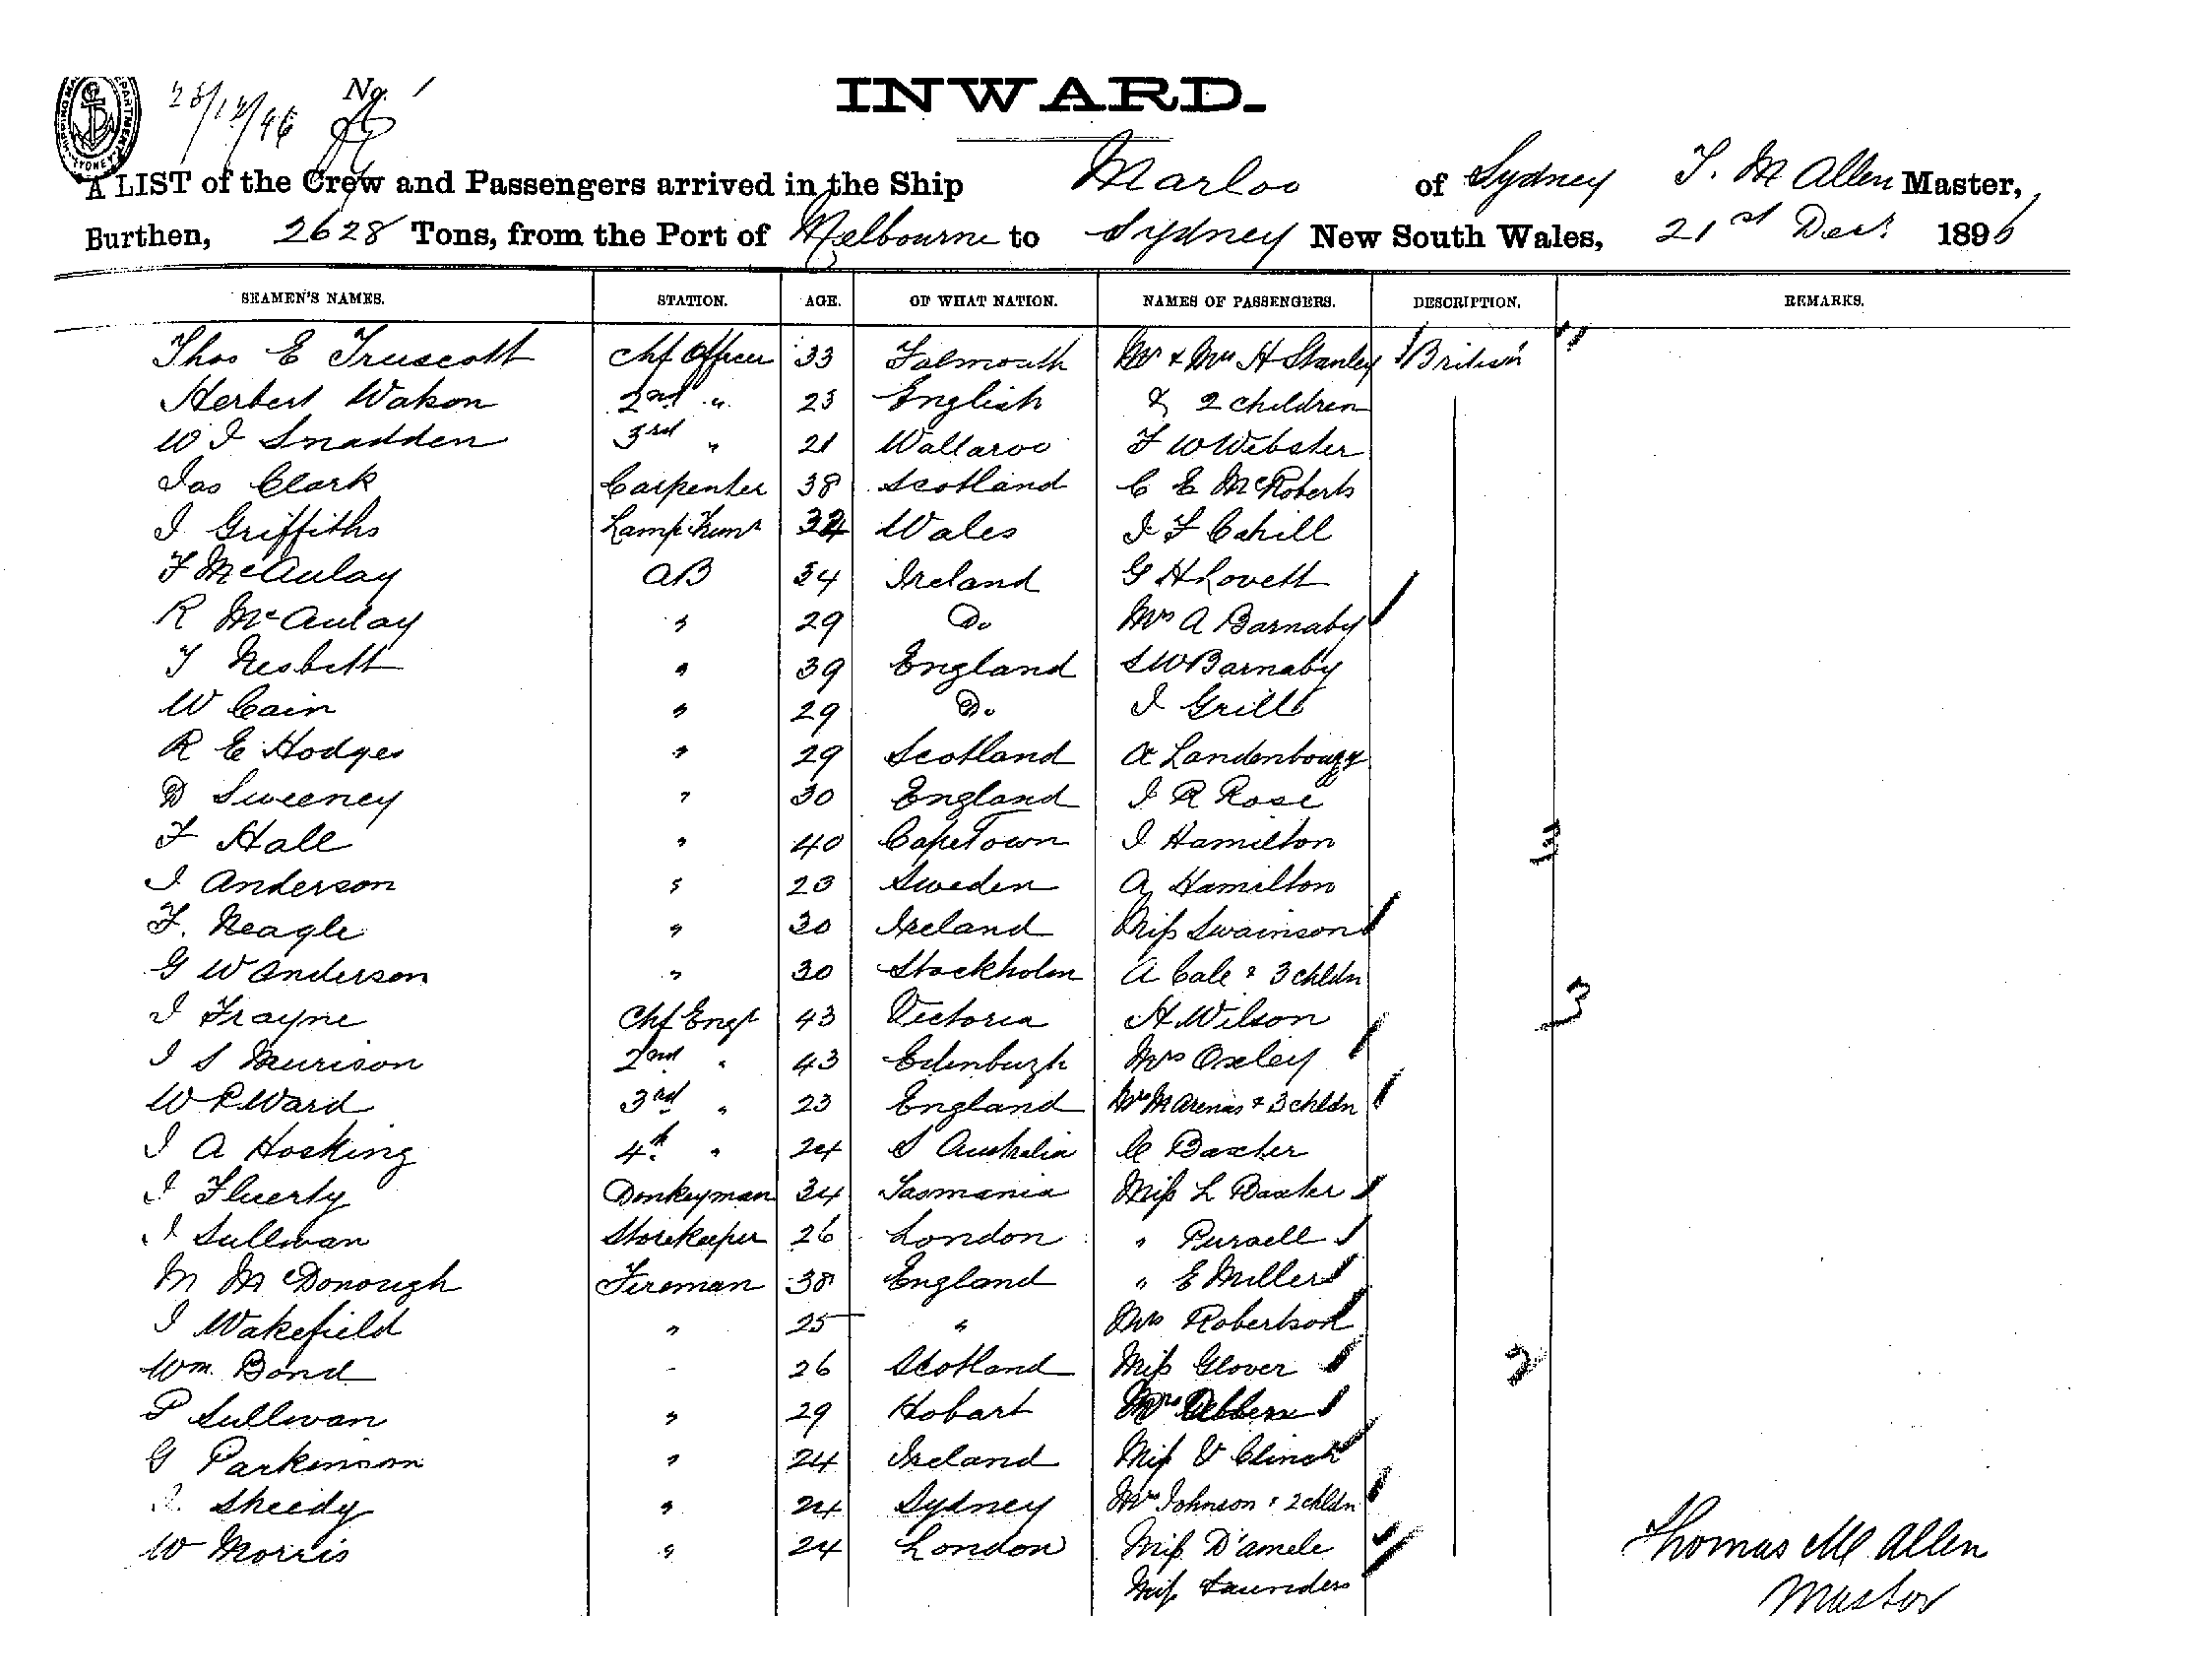 INWARD.
No. 1
A LIST of the Crew and Passengers arrived in the Ship Marloo of Sydney T. M Allen Master,
Burthen, 2628 Tons, from the Port of Melbourne to Sydney New South Wales, 21st Decr 1896
SEAMEN'S NAMES. STATION. AGE. OF WHAT NATION. NAMES OF PASSENGERS. DESCRIPTION. REMARKS.
Thos E Truscott Chf Officer 33 Falmouth Mr & Mrs H Stanley British
Herbert Watson 2nd " 23 English & 2 children
W J Snadden 3rd " 21 Wallaroo F W Webster
Jas Clark Carpenter 38 Scotland C E McRoberts
J Griffiths Lamp Trimr Wales J F Cahill
F McAulay AB 34 Ireland G H Lovett
R McAulay " 29 Do Mrs A Barnaby
T Nesbitt " 39 England S W Barnaby
W Cain " 29 Do J Grill
R E Hodges " 29 Scotland A
D Sweeney " 30 England J R Rose
F Hall " 40 CapeTown J Hamilton
J Anderson " 23 Sweden A Hamilton
F. Neagle " 30 Ireland Miss Swainson
G W Anderson " 30 Stockholm A Cale & 3 chldn
J Frayne Chf Engr 43 Victoria H Wilson
J S Murison 2nd " 43 Edinburgh Mrs Oxley
W R Ward 3rd " 23 England Mrs & 3 chldn
J A Hosking 4th " 24 S Australia C Baxter
J Fluerty Donkeyman 34 Tasmania Miss L Baxter
J Sullivan Storekeeper 26 London " Pursell
M McDonough Fireman 38 England " E Miller
J Wakefield " 25 " Mrs Robertson
Wm. Bond " 26 Scotland Miss Glover
P Sullivan " 29 Hobart Mrs
G Parkinson " 24 Ireland Miss V Clinch
Sheedy " 24 Sydney Mrs Johnson & 2 chldn
W Morris " 24 London Miss D'amele
Miss Saunders
Thomas M Allen
Master